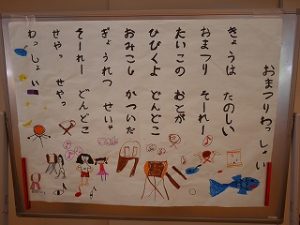 おまつりわっしょい
きょうは たのしい
おまつり そーれー
たいこの おとが
ひびくよ どんどこ
おみこし かついだ
ぎょうれつ せいや
そーれー どんどこ
せやっ せやっ
わっしょい